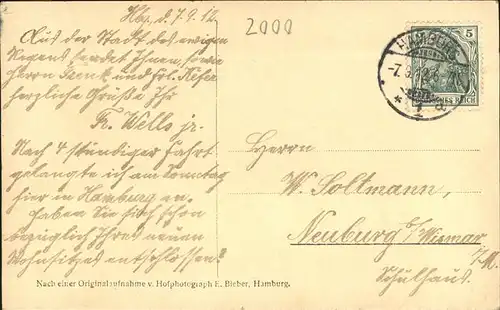 Hbg., d. 7.9.12.
2000
Aus der Stadt des ewigen
Regens sendet Ihnen, sowie
Herrn Frenk und Frl.
herzliche Grüße Ihr
Fr. Wells jr.
Nach 4 stündiger Fahrt
gelangte ich am Sonntag
hier in Hamburg an.
Haben Sie sich schon
bezüglich Ihres neuen
Wohnsitzes entschlossen?
HAMBURG
5
DEUTSCHES REICH
Herrn
W. Soltmann,
Neuburg b/ Wismar
i/M.
Schulhaus.
Nach einer Originalaufnahme v. Hofphotograph E. Bieber, Hamburg.